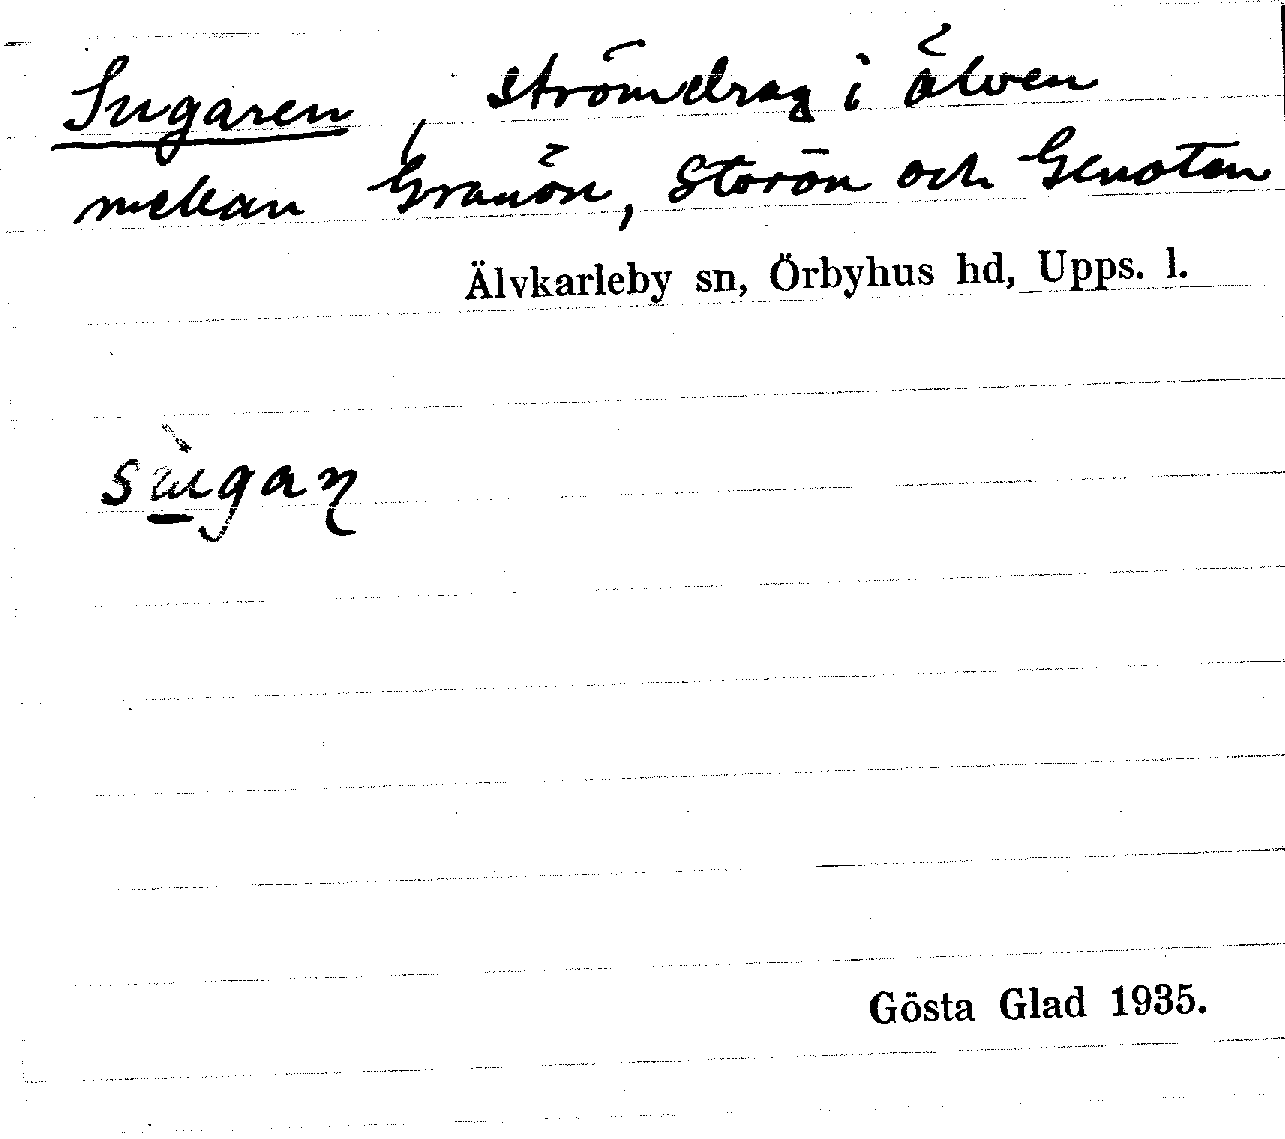 Sugaren, strömdrag i älven
mellan Granön, Storön och Genoten
Älvkarleby sn, Örbyhus hd, Upps. l.
Gösta Glad 1935.